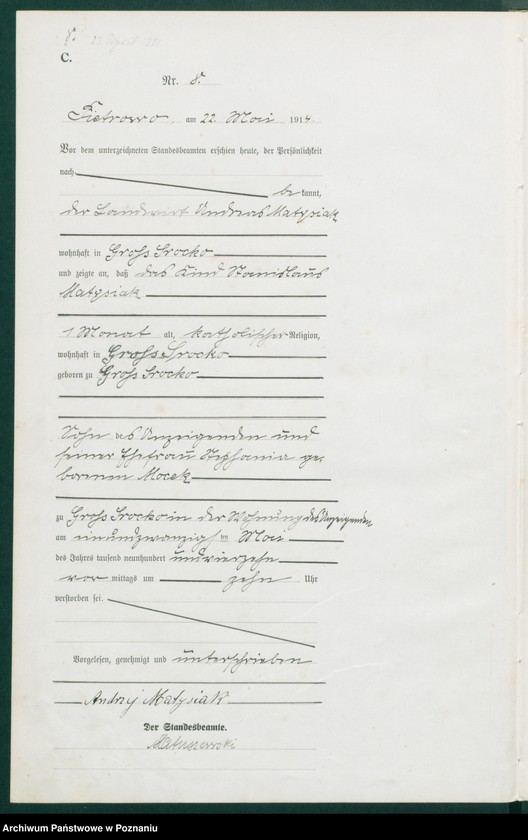 8.
C.
Nr. 8.
Pietrowo, am 22. Mai 1914.
Vor dem unterzeichneten Standesbeamten erschien heute, der Persönlichkeit
nach
bekannt,
der Landwirt Andreas Matysiak
wohnhaft in Groß Srocko
und zeigte an, daß das Kind Stanislaus
Matysiak
1 Monat alt, katholischer Religion,
wohnhaft in Groß Srocko
geboren zu Groß Srocko
Sohn des Anzeigenden und
seiner Ehefrau Stephania ge-
borenen Mocek
zu Groß Srocko in der Wohnung des Anzeigenden
am einundzwanzigsten Mai
des Jahres tausend neunhundert undvierzehn
vor mittags um zehn Uhr
verstorben sei.
Vorgelesen, genehmigt und unterschrieben
Andrzej Matysiak
Der Standesbeamte.
Matuszewski
Archiwum Państwowe w Poznaniu